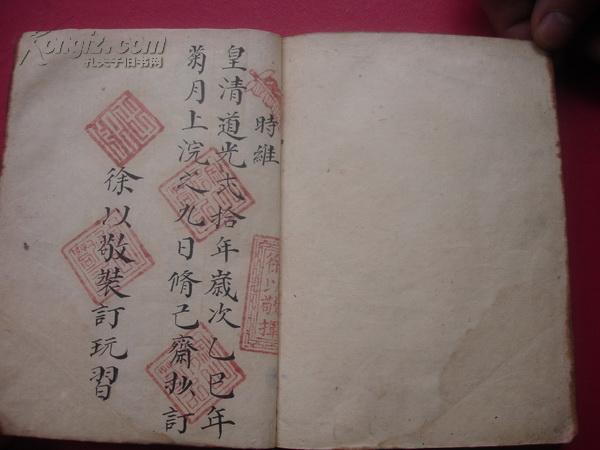 時維
皇清道光弍拾年歲次乙巳年
菊月上浣之九日脩己齋抄訂
徐以敬裝訂玩習
徐以敬
Kongfz.com
孔夫子旧书网